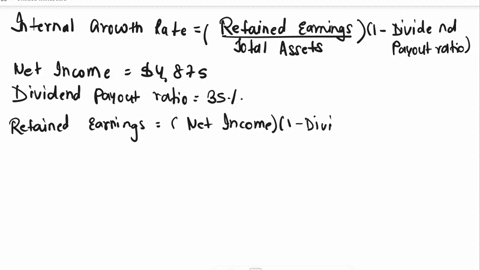 Internal Growth Rate = ( Retained Earnings / Total Assets ) (1 - Dividend Payout ratio)
Net Income = $4,875
Dividend Payout ratio = 35%.
Retained Earnings = ( Net Income)(1 - Divi